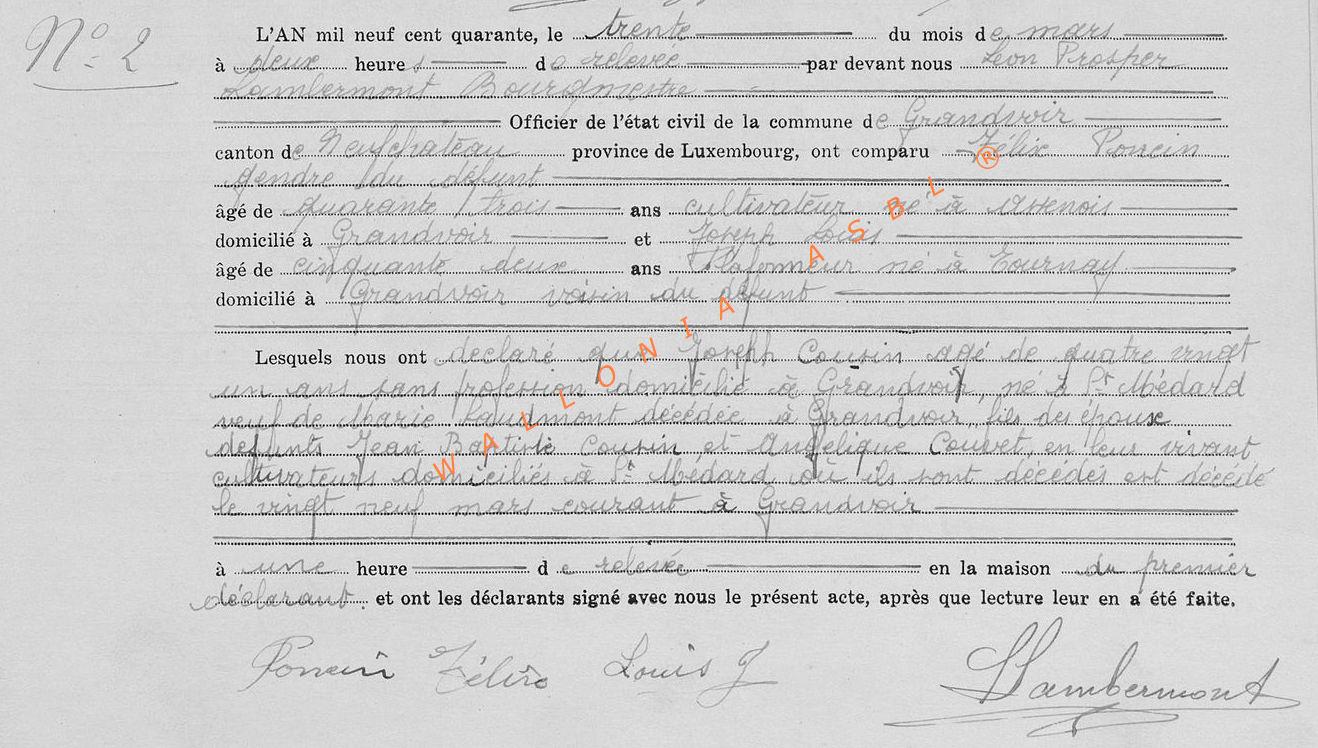 N° 2
L'AN mil neuf cent quarante, le trente du mois de mars
à deux heures de relevée par devant nous Léon Prosper
Lambermont Bourgmestre
Officier de l'état civil de la commune de Grandvoir
canton de Neufchâteau province de Luxembourg, ont comparu Félix Poncin
gendre du défunt
âgé de quarante trois ans cultivateur né à Assenois
domicilié à Grandvoir et Joseph Louis
âgé de cinquante deux ans Plafonneur né à Tournay
domicilié à Grandvoir voisin du défunt
Lesquels nous ont declaré que Joseph Cousin agé de quatre vingt
un ans sans profession domicilié à Grandvoir, né à St Médard
veuf de Marie Laudmont décédée à Grandvoir, fils des époux
defunts Jean Baptiste Cousin et Angélique Couvet, en leur vivant
cultivateurs domiciliés à St Médard où ils sont décédés est décédé
le vingt neuf mars courant à Grandvoir
à une heure de relevée en la maison du premier
déclarant. et ont les déclarants signé avec nous le présent acte, après que lecture leur en a été faite.
Poncin Félix Louis J Lambermont
WALLONIA ASBL ®